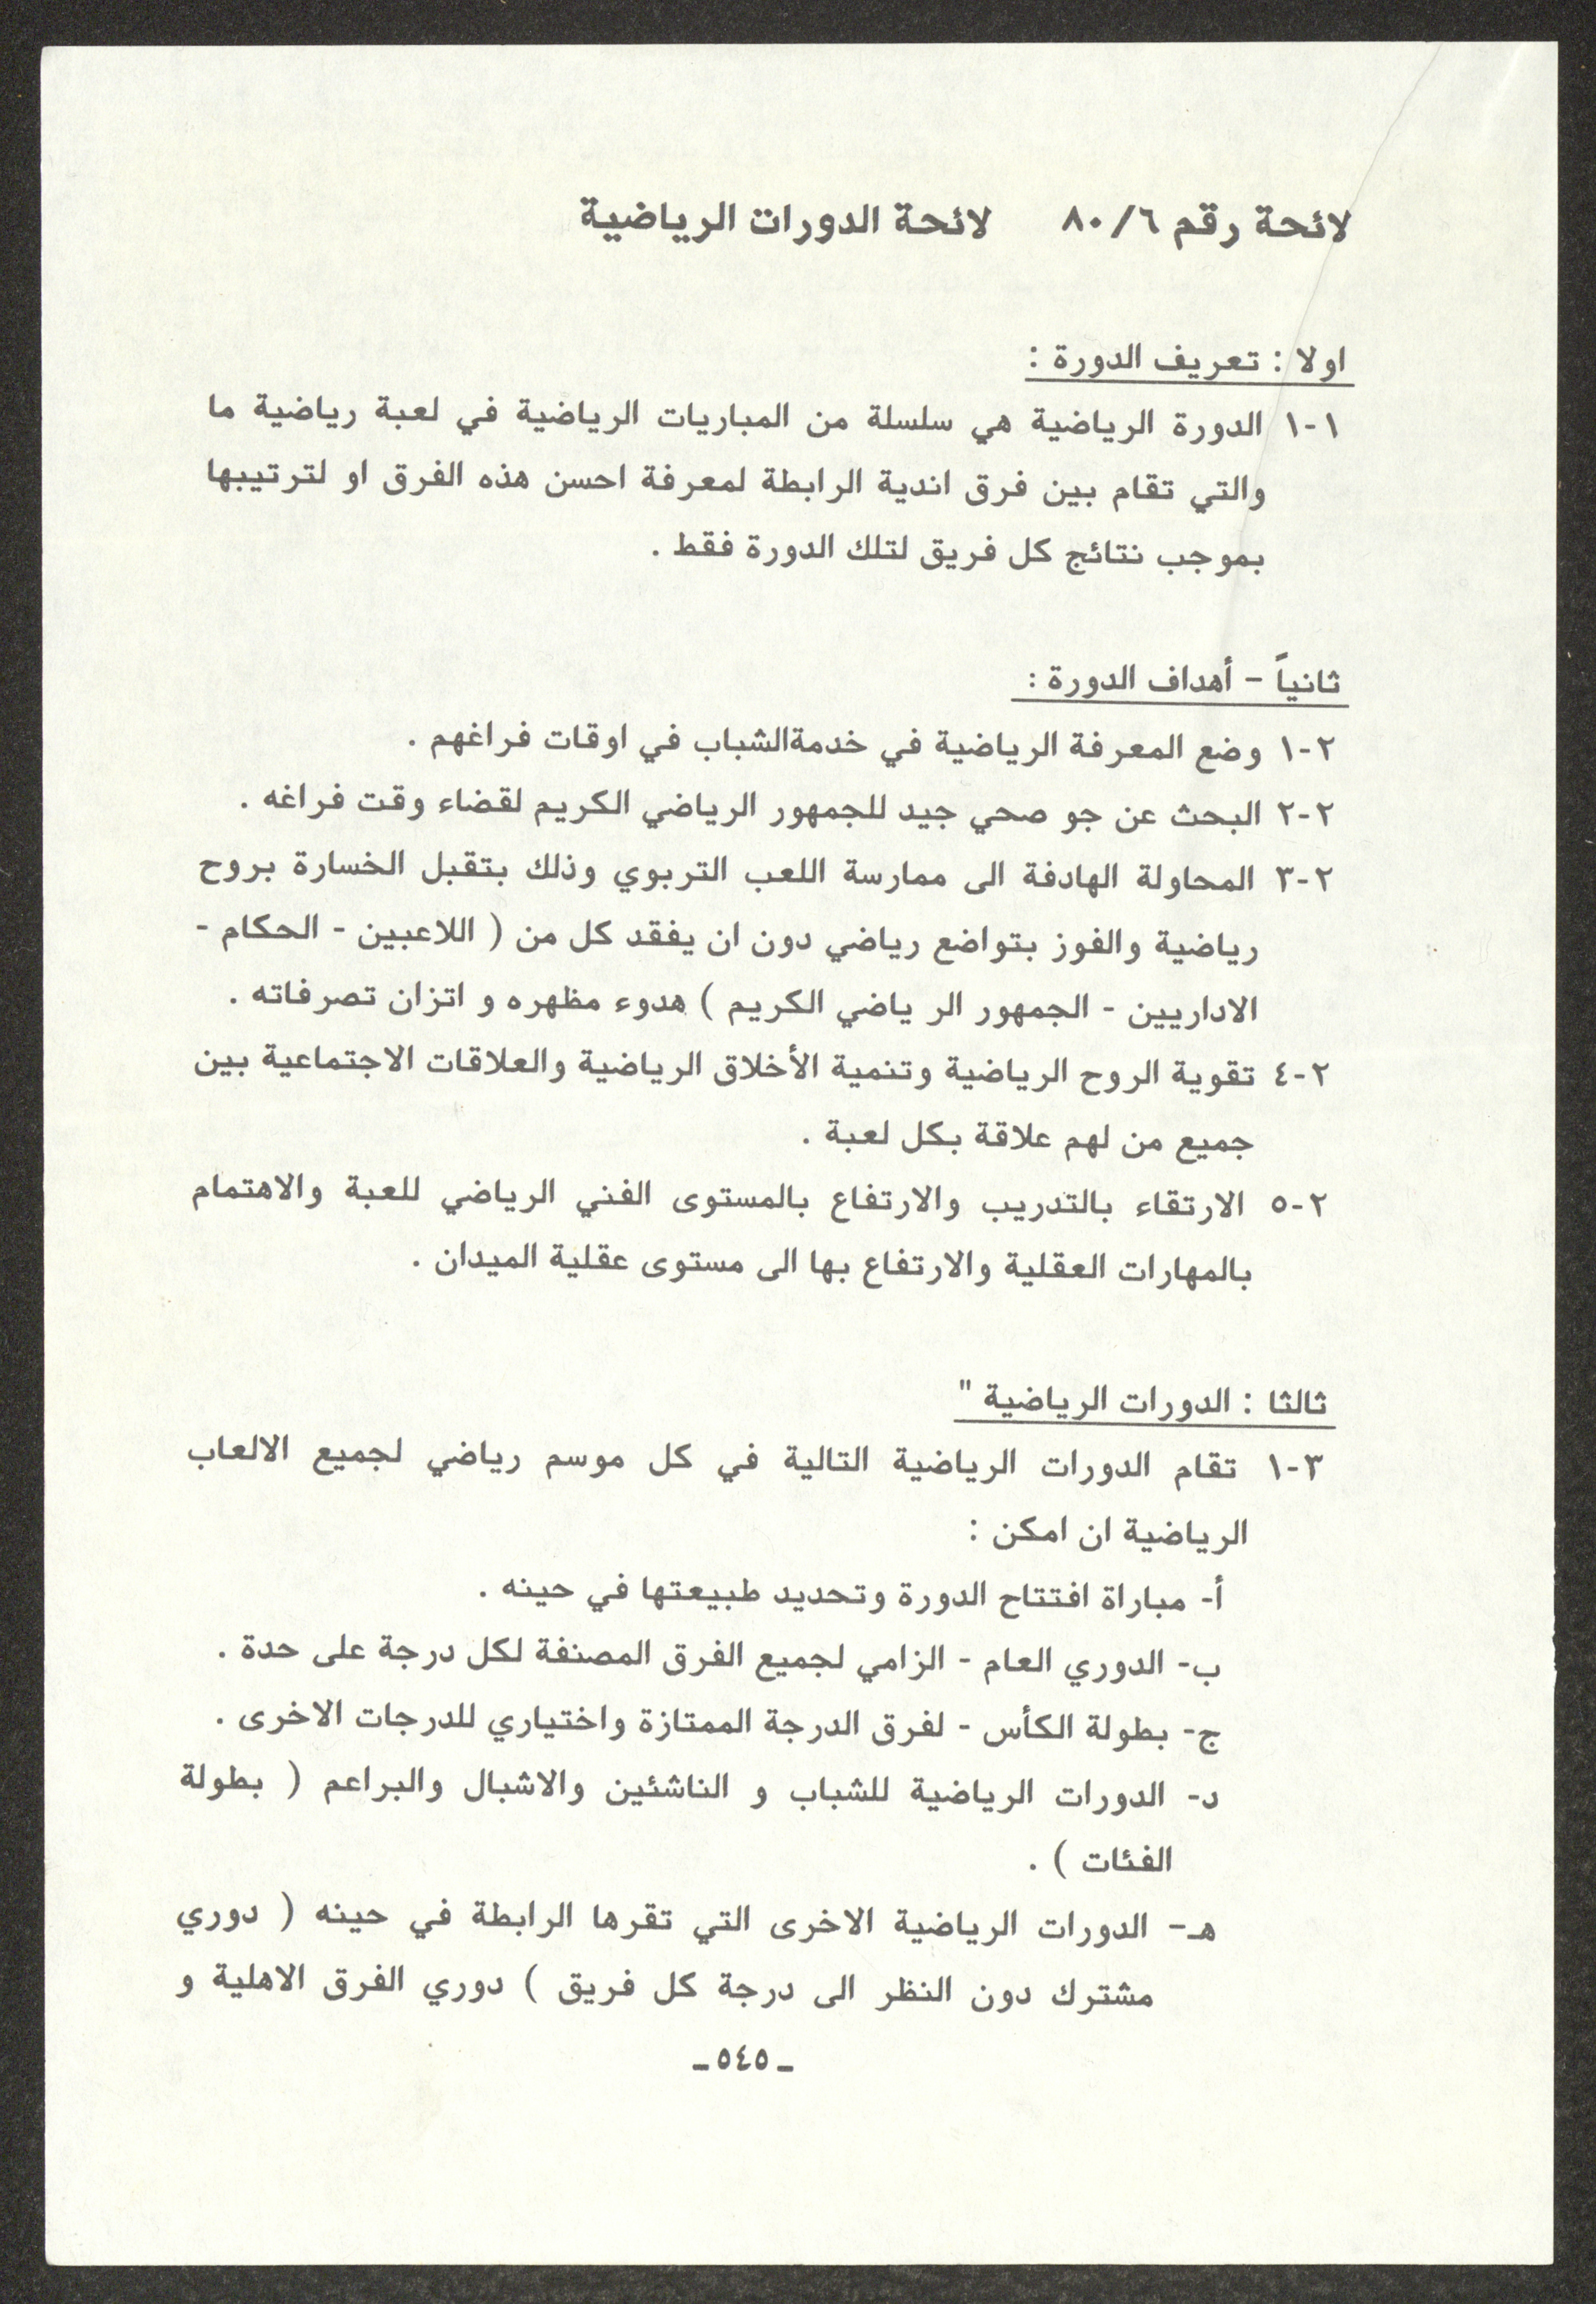 لائحة رقم ٨٠/٦ لائحة الدورات الرياضية
اولا : تعريف الدورة :
١-١ الدورة الرياضية هي سلسلة من المباريات الرياضية في لعبة رياضية ما
والتي تقام بين فرق اندية الرابطة لمعرفة احسن هذه الفرق او لترتيبها
بموجب نتائج كل فريق لتلك الدورة فقط .
ثانياً - أهداف الدورة :
٢-١ وضع المعرفة الرياضية في خدمةالشباب في اوقات فراغهم .
٢-٢ البحث عن جو صحي جيد للجمهور الرياضي الكريم لقضاء وقت فراغه .
٢-٣ المحاولة الهادفة الى ممارسة اللعب التربوي وذلك بتقبل الخسارة بروح
رياضية والفوز بتواضع رياضي دون ان يفقد كل من ( اللاعبين - الحكام -
الاداريين - الجمهور الر ياضي الكريم ) هدوء مظهره و اتزان تصرفاته .
٢-٤ تقوية الروح الرياضية وتنمية الأخلاق الرياضية والعلاقات الاجتماعية بين
جميع من لهم علاقة بكل لعبة .
٢-٥ الارتقاء بالتدريب والارتفاع بالمستوى الفني الرياضي للعبة والاهتمام
بالمهارات العقلية والارتفاع بها الى مستوى عقلية الميدان .
ثالثا : الدورات الرياضية "
٣-١ تقام الدورات الرياضية التالية في كل موسم رياضي لجميع الالعاب
الرياضية ان امكن :
أ- مباراة افتتاح الدورة وتحديد طبيعتها في حينه .
ب- الدوري العام - الزامي لجميع الفرق المصنفة لكل درجة على حدة .
ج- بطولة الكأس - لفرق الدرجة الممتازة واختياري للدرجات الاخرى .
د- الدورات الرياضية للشباب و الناشئين والاشبال والبراعم ( بطولة
الفئات ) .
هـ- الدورات الرياضية الاخرى التي تقرها الرابطة في حينه ( دوري
مشترك دون النظر الى درجة كل فريق ) دوري الفرق الاهلية و
ـ ٥٤٥ ـ